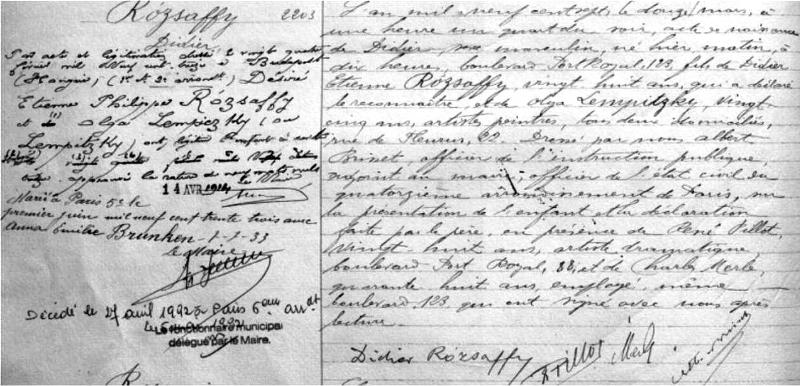 Rózsaffy 2203
Didier
Par acte de légitimation
mil neuf cent Budapest
(Hongrie) Désiré
Etienne Philippe Rózsaffy
et Olga Lempiczky (ou
Lempitzky) ont légitimé l'enfant
14 AVR 1914
Marié à Paris 5e le
premier juin mil neuf cent trente trois avec
Anna Emilie Brunken 7-7-33
le Maire
Décédé le 27 avril 1992 à Paris 6ème arrdt
Le fonctionnaire municipal
délégué par le Maire.
L'an mil neuf cent sept, le douze mars, à
une heure un quart du soir, acte de naissance
de Didier, sexe masculin, né hier matin, à
dix heures, boulevard Port Royal, 123, fils de Didier
Etienne Rózsaffy, vingt huit ans, qui a déclaré
le reconnaître, et de Olga Lempitzky, vingt-
cinq ans, artistes peintres, tous deux domiciliés,
rue de Fleurus, 22. Dressé par nous Albert
Brinet, officier de l'instruction publique,
adjoint au maire, officier de l'état civil du
quatorzième arrondissement de Paris, sur
la présentation de l'enfant et la déclaration
faite par le père, en présence de René Pillot,
vingt huit ans, artiste dramatique,
boulevard Port Royal, 88, et de Charles Merle,
quarante huit ans, employé, même
boulevard, 123, qui ont signé avec nous après
lecture.
Didier Rózsaffy Pillot Merle